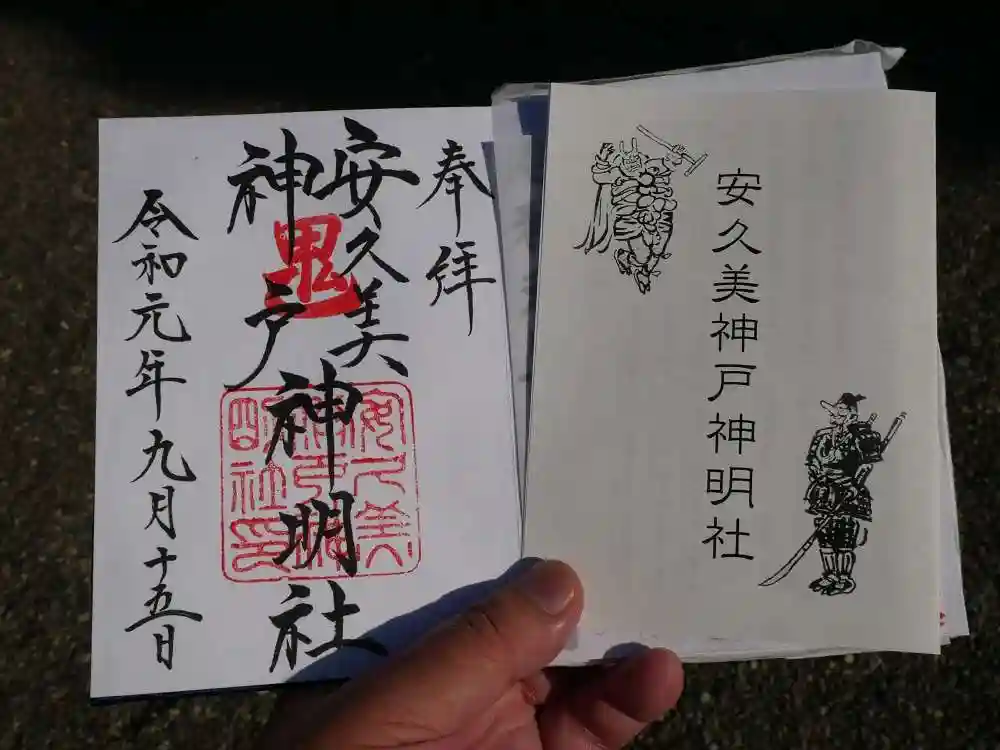 奉拝
安久美
神戸
神明社
鬼
安久美神戸神明社印
令和元年九月十五日
安久美神戸神明社